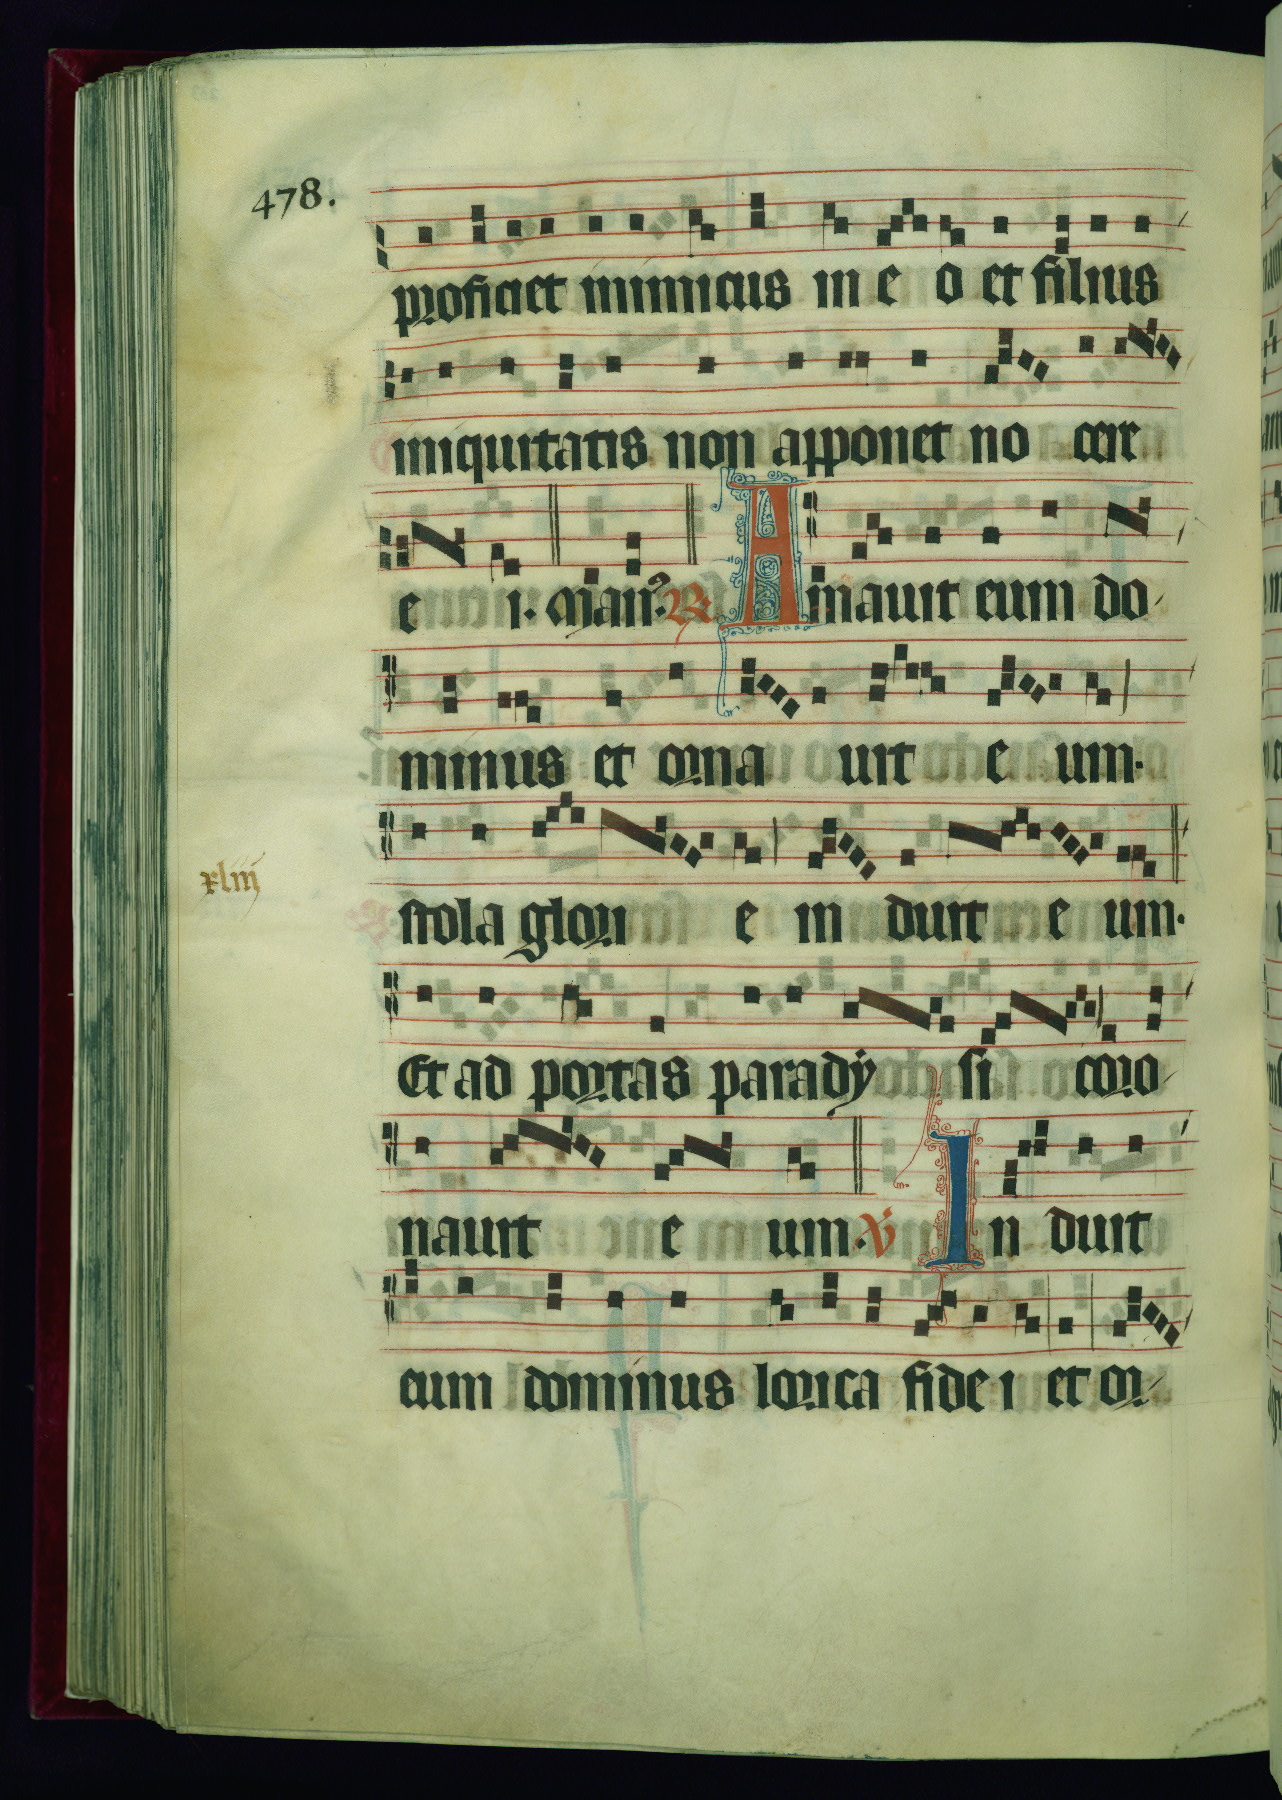 478.
proficiet inimicus in e o et filius
iniquitatis non apponet no cere
e i. Man. R Amauit eum do
minus et orna uit e um.
xliiii
stola glori e in duit e um.
Et ad portas paradÿ si coro
nauit e um. V In duit
eum dominus lorica fide i et or